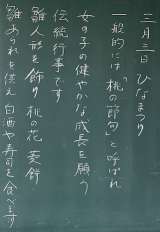 三月三日 ひなまつり
一般的には「桃の節句」と呼ばれ
女の子の健やかな成長を願う
伝統行事です
雛人形を飾り 桃の花 菱餅
雛あられを供え 白酒や寿司を食べます